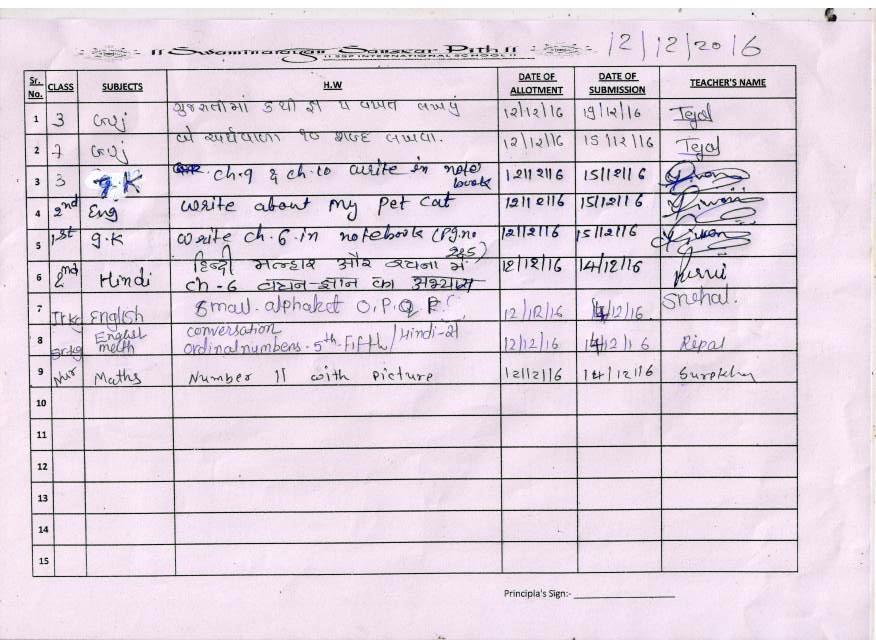 || Swaminarayan Sanskar Pith || 12/12/2016
|| SSP INTERNATIONAL SCHOOL ||
Sr. No. CLASS SUBJECTS H.W DATE OF ALLOTMENT DATE OF SUBMISSION TEACHER'S NAME
1 3 ગુજ ગુજરાતીમાં ક થી જ્ઞ વખત લખવું 12/12/16 19/12/16 Tejal
2 7 ગુજ બે અર્થવાળા ૧૦ શબ્દ લખવા. 12/12/16 15/12/16 Tejal
3 3 g.K ch.9 & ch.10 write in note book 12/12/16 15/12/16
4 2nd Eng write about my pet cat 12/12/16 15/12/16
5 1st g.K write ch.6 in notebook (pg.no 12/12/16 15/12/16
6 2nd Hindi हिन्दी मल्हार और रचना में 12/12/16 14/12/16
ch-6 वचन-ज्ञान का अभ्यास
7 Jrkg English Small alphabet O,P,Q 12/12/16 14/12/16 Snehal.
8 Srkg English conversation
meth ordinal numbers - 5th-Fifth/Hindi- 12/12/16 14/12/16 Ripal
9 Nur Maths Number 11 with picture 12/12/16 14/12/16
10
11
12
13
14
15
Principla's Sign:-